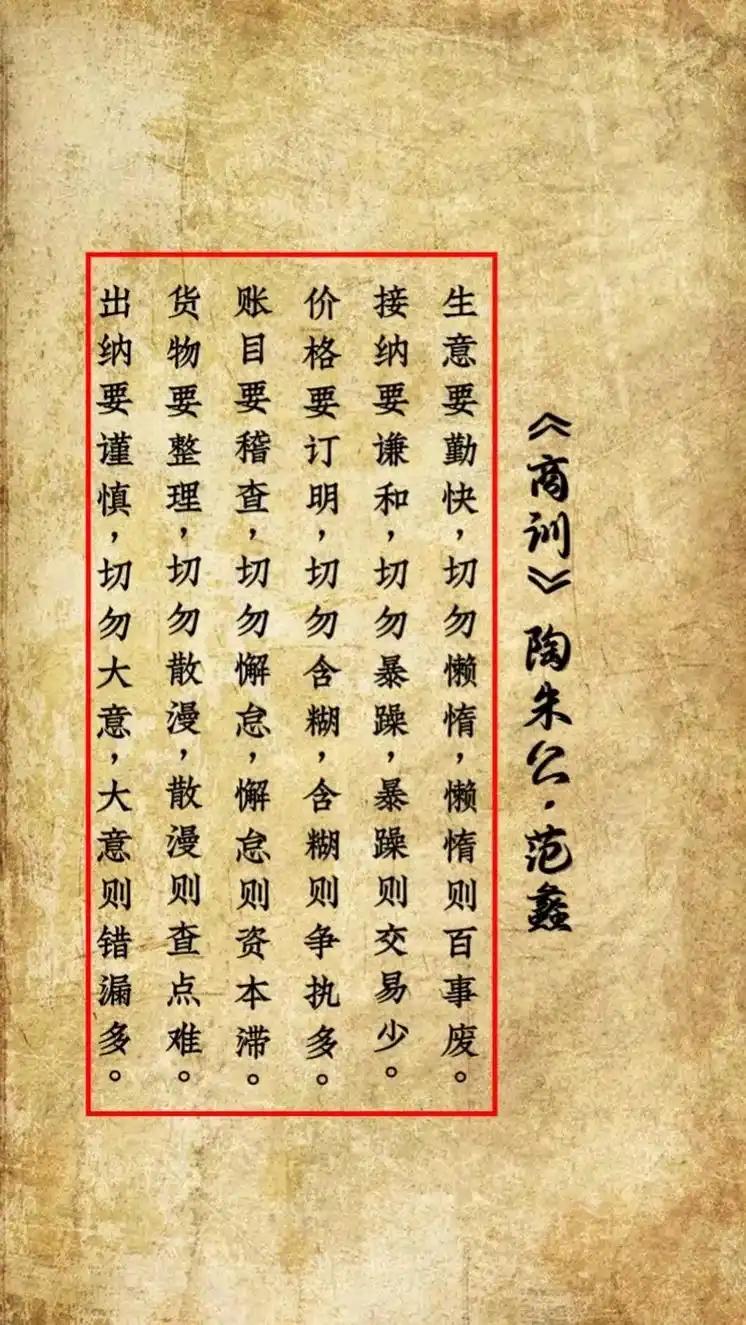 《商训》陶朱公·范蠡
生意要勤快，切勿懒惰，懒惰则百事废。
接纳要谦和，切勿暴躁，暴躁则交易少。
价格要订明，切勿含糊，含糊则争执多。
账目要稽查，切勿懈怠，懈怠则资本滞。
货物要整理，切勿散漫，散漫则查点难。
出纳要谨慎，切勿大意，大意则错漏多。